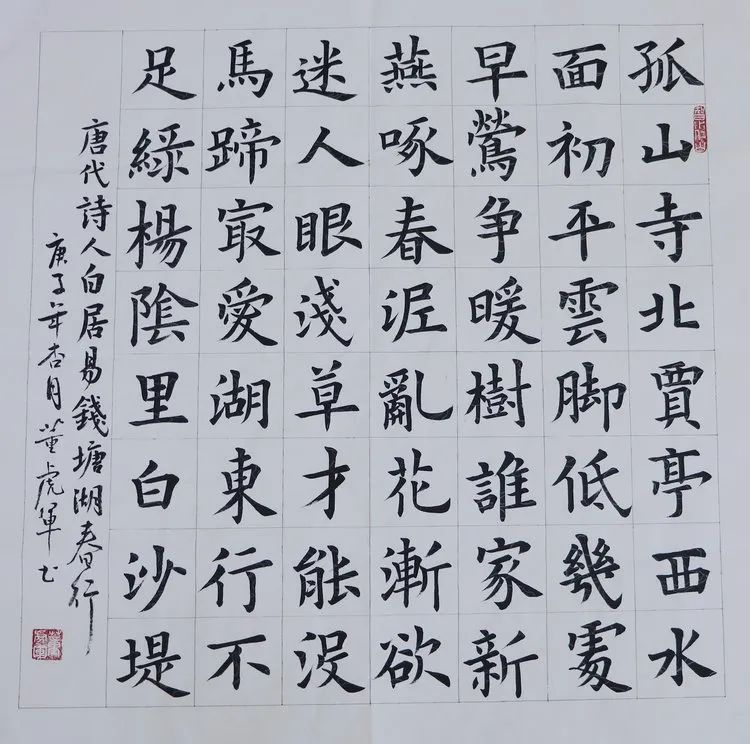 孤山寺北賈亭西水
面初平雲脚低幾處
早鶯争暖樹誰家新
燕啄春泥亂花漸欲
迷人眼淺草才能没
馬蹄㝡愛湖東行不
足綠楊陰里白沙堤
唐代詩人白居易錢塘湖春行
庚子年杏月董虎軍书